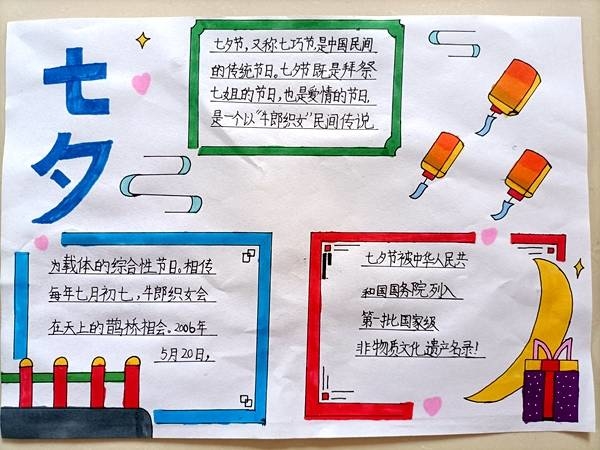 七夕
七夕节，又称七巧节，是中国民间
的传统节日。七夕节既是拜祭
七姐的节日，也是爱情的节日，
是一个以“牛郎织女”民间传说
为载体的综合性节日。相传
每年七月初七，牛郎织女会
在天上的鹊桥相会。2006年
5月20日，
七夕节被中华人民共
和国国务院列入
第一批国家级
非物质文化遗产名录！